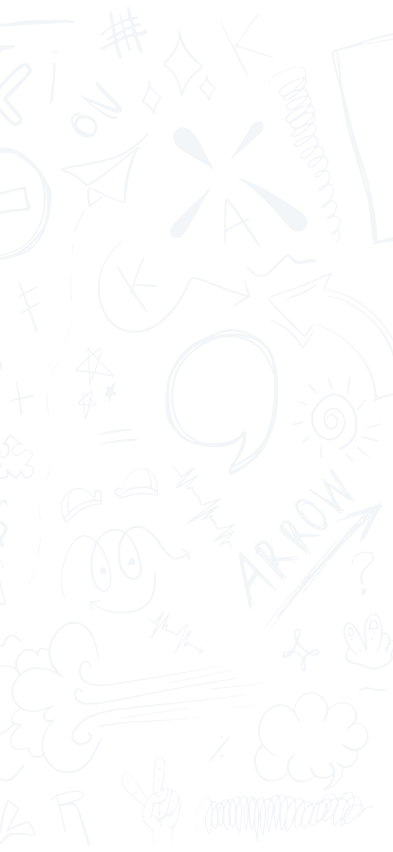 #
K
ON
A
K
ARROW
?